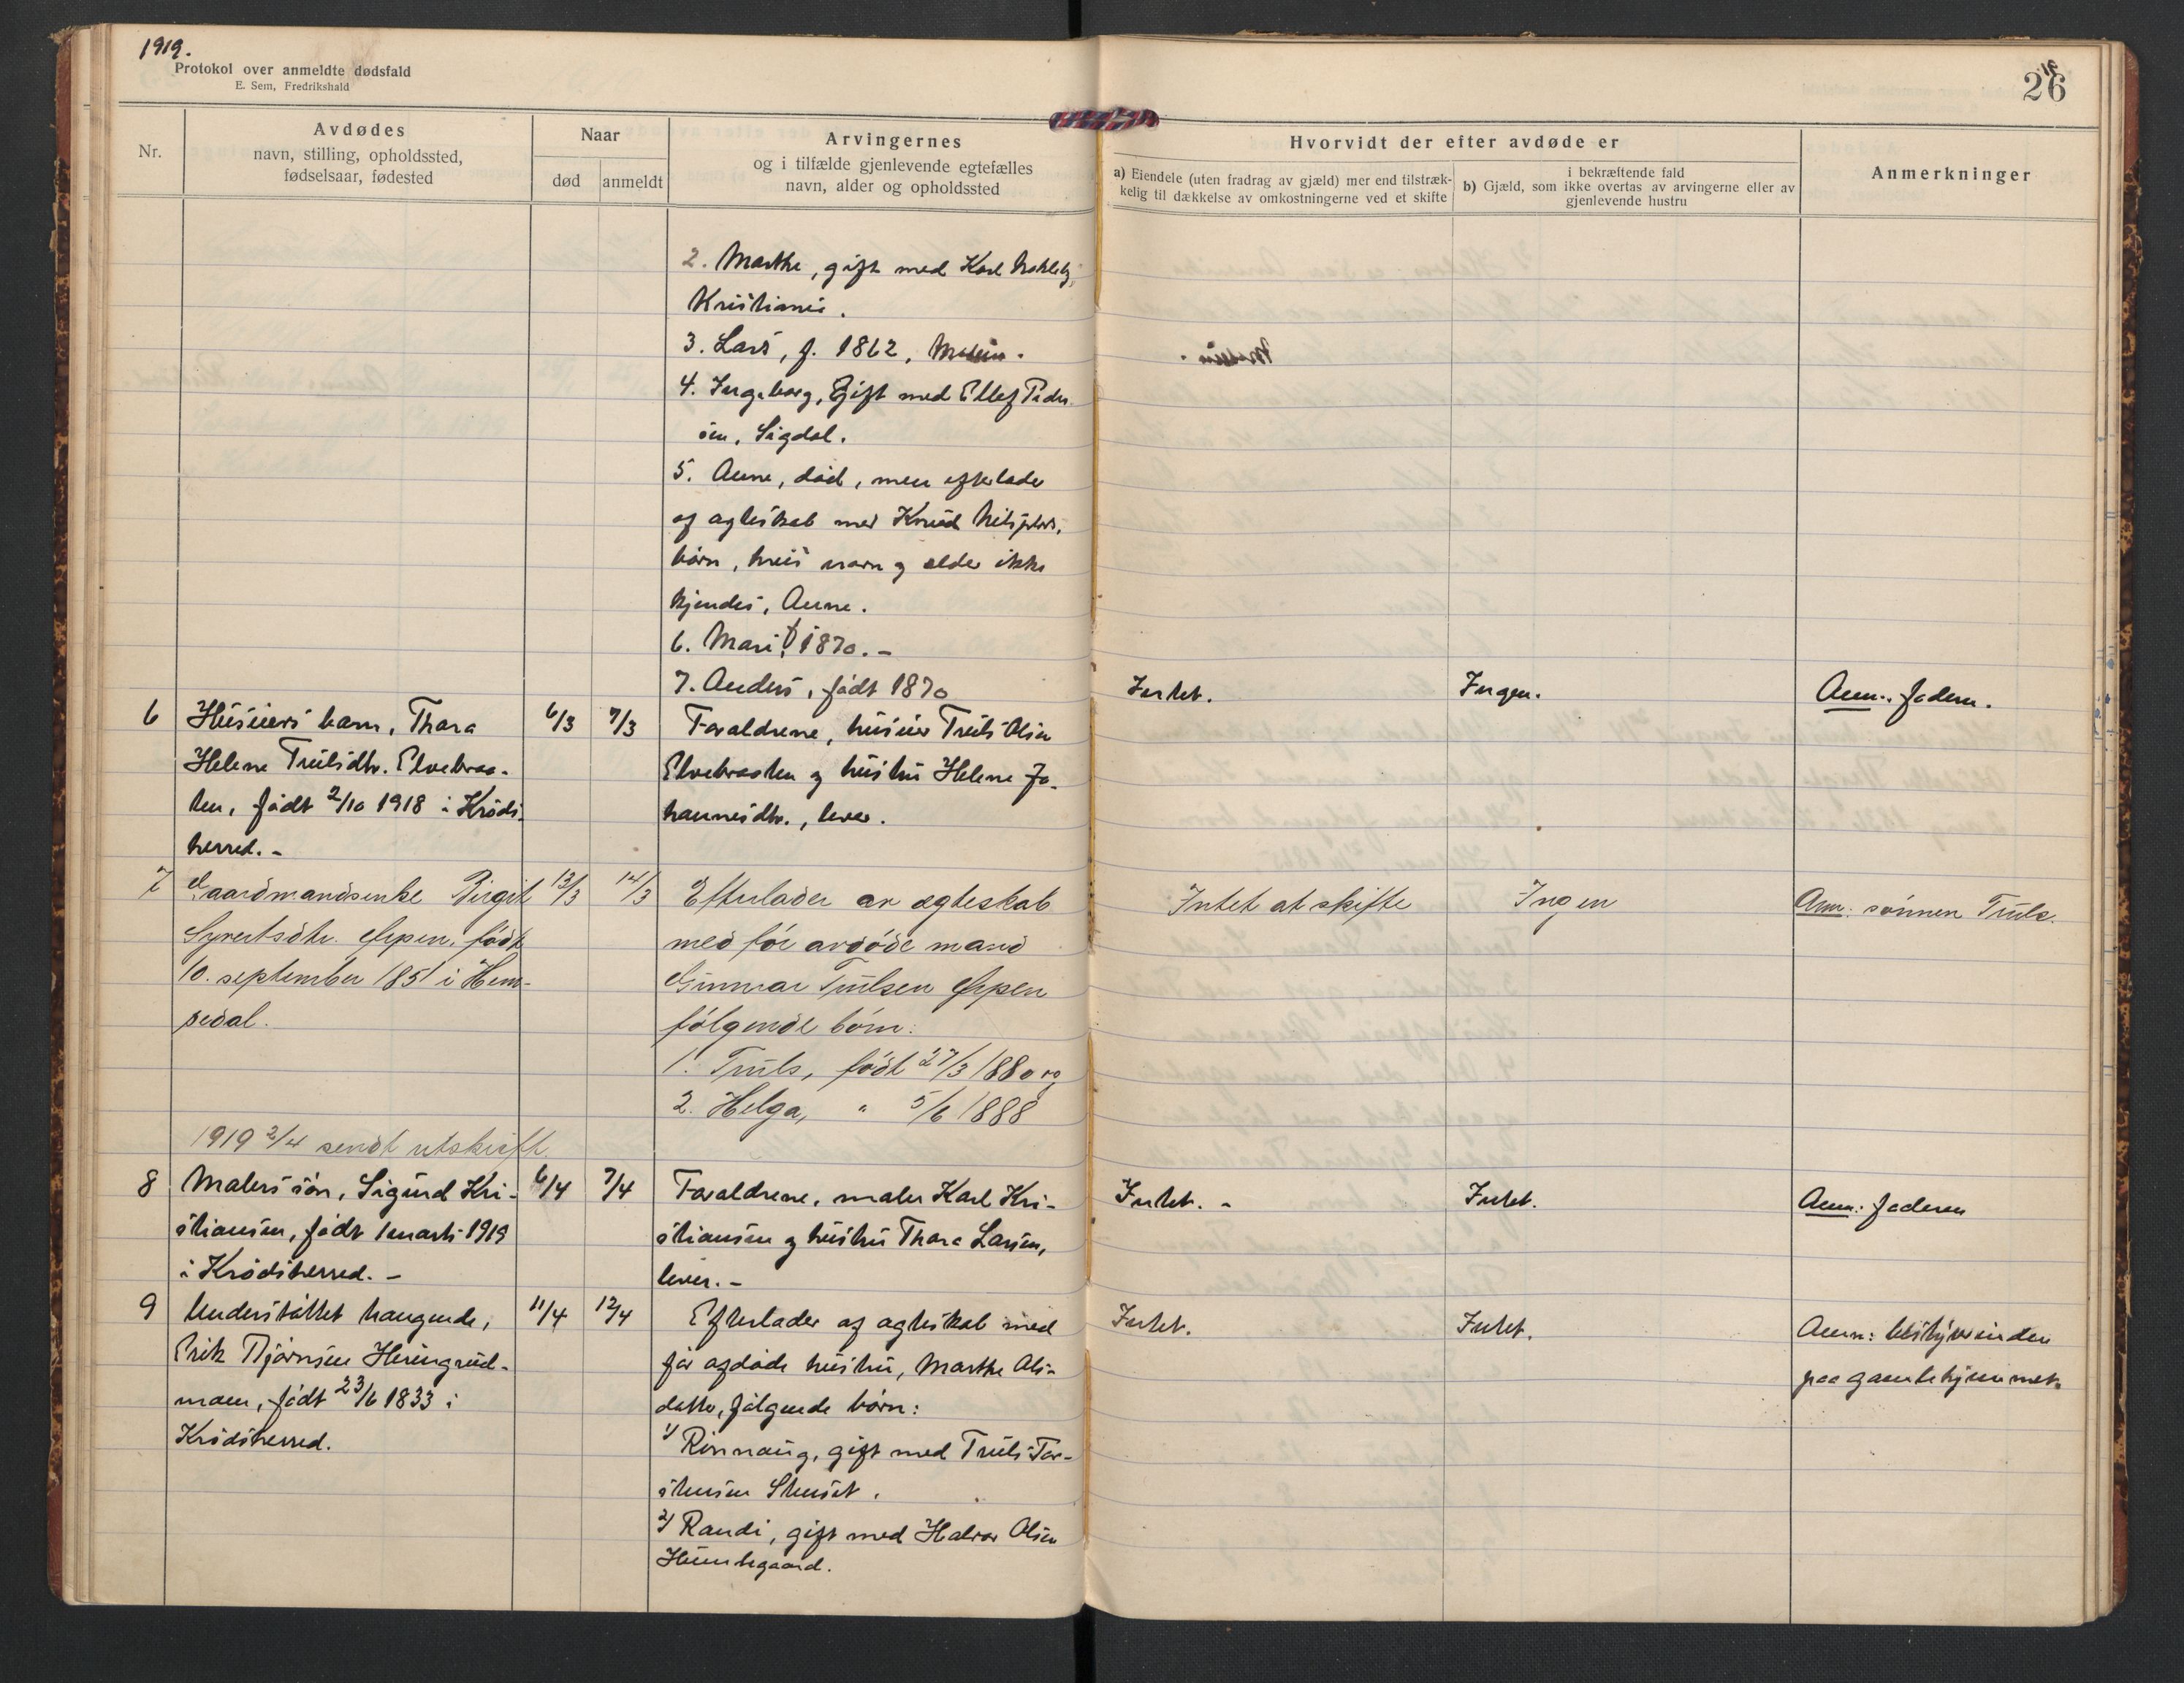 1919.
Protokol over anmeldte dødsfald
E. Sem, Fredrikshald
26
Nr.
Avdødes
navn, stilling, opholdssted,
fødselsaar, fødested
Naar
død
anmeldt
Arvingernes
og i tilfælde gjenlevende egtefælles
navn, alder og opholdssted
Hvorvidt der efter avdøde er
a) Eiendele (uten fradrag av gjæld) mer end tilstræk-
kelig til dækkelse av omkostningerne ved et skifte
i bekræftende fald
b) Gjæld, som ikke overtas av arvingerne eller av
gjenlevende hustru
Anmerkninger
2. Marthe, gift med Karl
Kristiania.
3. Lars, f. 1862,
4. Ingeborg, Gift med Ellef Peder-
sen, Sigdal.
5. Anne, død, men efterlader
af ægteskab med Knud
børn, hvis navn og alder ikke
kjendes, Anne.
6. Mari, f 1870. -
7. Anders, født 1870
6
Husiers barn, Thora
Helene Trulsdtr. Elvebraa-
ten, født 2/10 1918 i Kröds-
herred. -
6/3
7/3
Forældrene, husier Truls Olsen
Elvebraaten og hustru Helene Jo-
hannesdtr., lever.
Intet.
Ingen.
Anm.: faderen.
7
Gaardmandsenke Birgit
Syvertsdtr. Gupen, født
10. september 1851 i Hem-
sedal.
13/3
14/3
Efterlader av ægteskab
med før avdøde mand
Gunnar Trulsen
følgende børn:
1. Truls, født 27/3 1880 og
2. Helga, " 5/6 1888
Intet at skifte
Ingen
Anm: sønnen Truls.
1919 2/4 sendt utskrift
8
Malers søn, Sigurd Kri-
stiansen, født 1 marts 1919
i Krödsherred. -
6/4
7/4
Forældrene, maler Karl Kri-
stiansen og hustru Thora Larsen,
lever. -
Intet. -
Intet.
Anm: faderen
9
Understøttet trængende,
Erik Bjørnsen Heringrud-
moen, født 23/6 1833 i
Krödsherred.
11/4
12/4
Efterlader af ægteskab med
før afdøde hustru, Marthe Ols-
datter, følgende børn:
1) Rønnaug, gift med Truls Tor-
stensen Stensæt.
2) Randi, gift med Halvor Olsen
Heimtegaard.
Intet.
Intet.
Anm: bestyrerinden
paa gamlehjemmet.